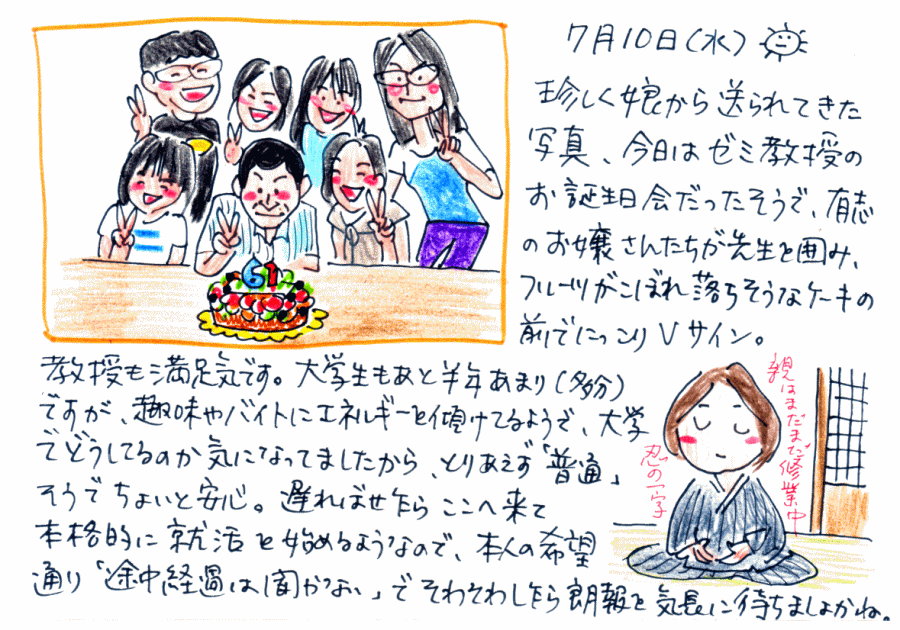 7月10日(水)
珍しく娘から送られてきた
写真、今日はゼミ教授の
お誕生日会だったそうで、有志
のお嬢さんたちが先生を囲み、
フルーツがこぼれ落ちそうなケーキの
前でにっこりVサイン。
61
教授も満足気です。大学生もあと半年あまり(多分)
ですが、趣味やバイトにエネルギーを傾けてるようで、大学
でどうしてるのか気になってましたから、とりあえず「普通」
そうでちょいと安心。遅ればせ乍らここへ来て
本格的に就活を始めるようなので、本人の希望
通り「途中経過は聞かない」でそわそわし乍ら朗報を気長に待ちましょかね。
親はまだまだ修業中
忍の一字